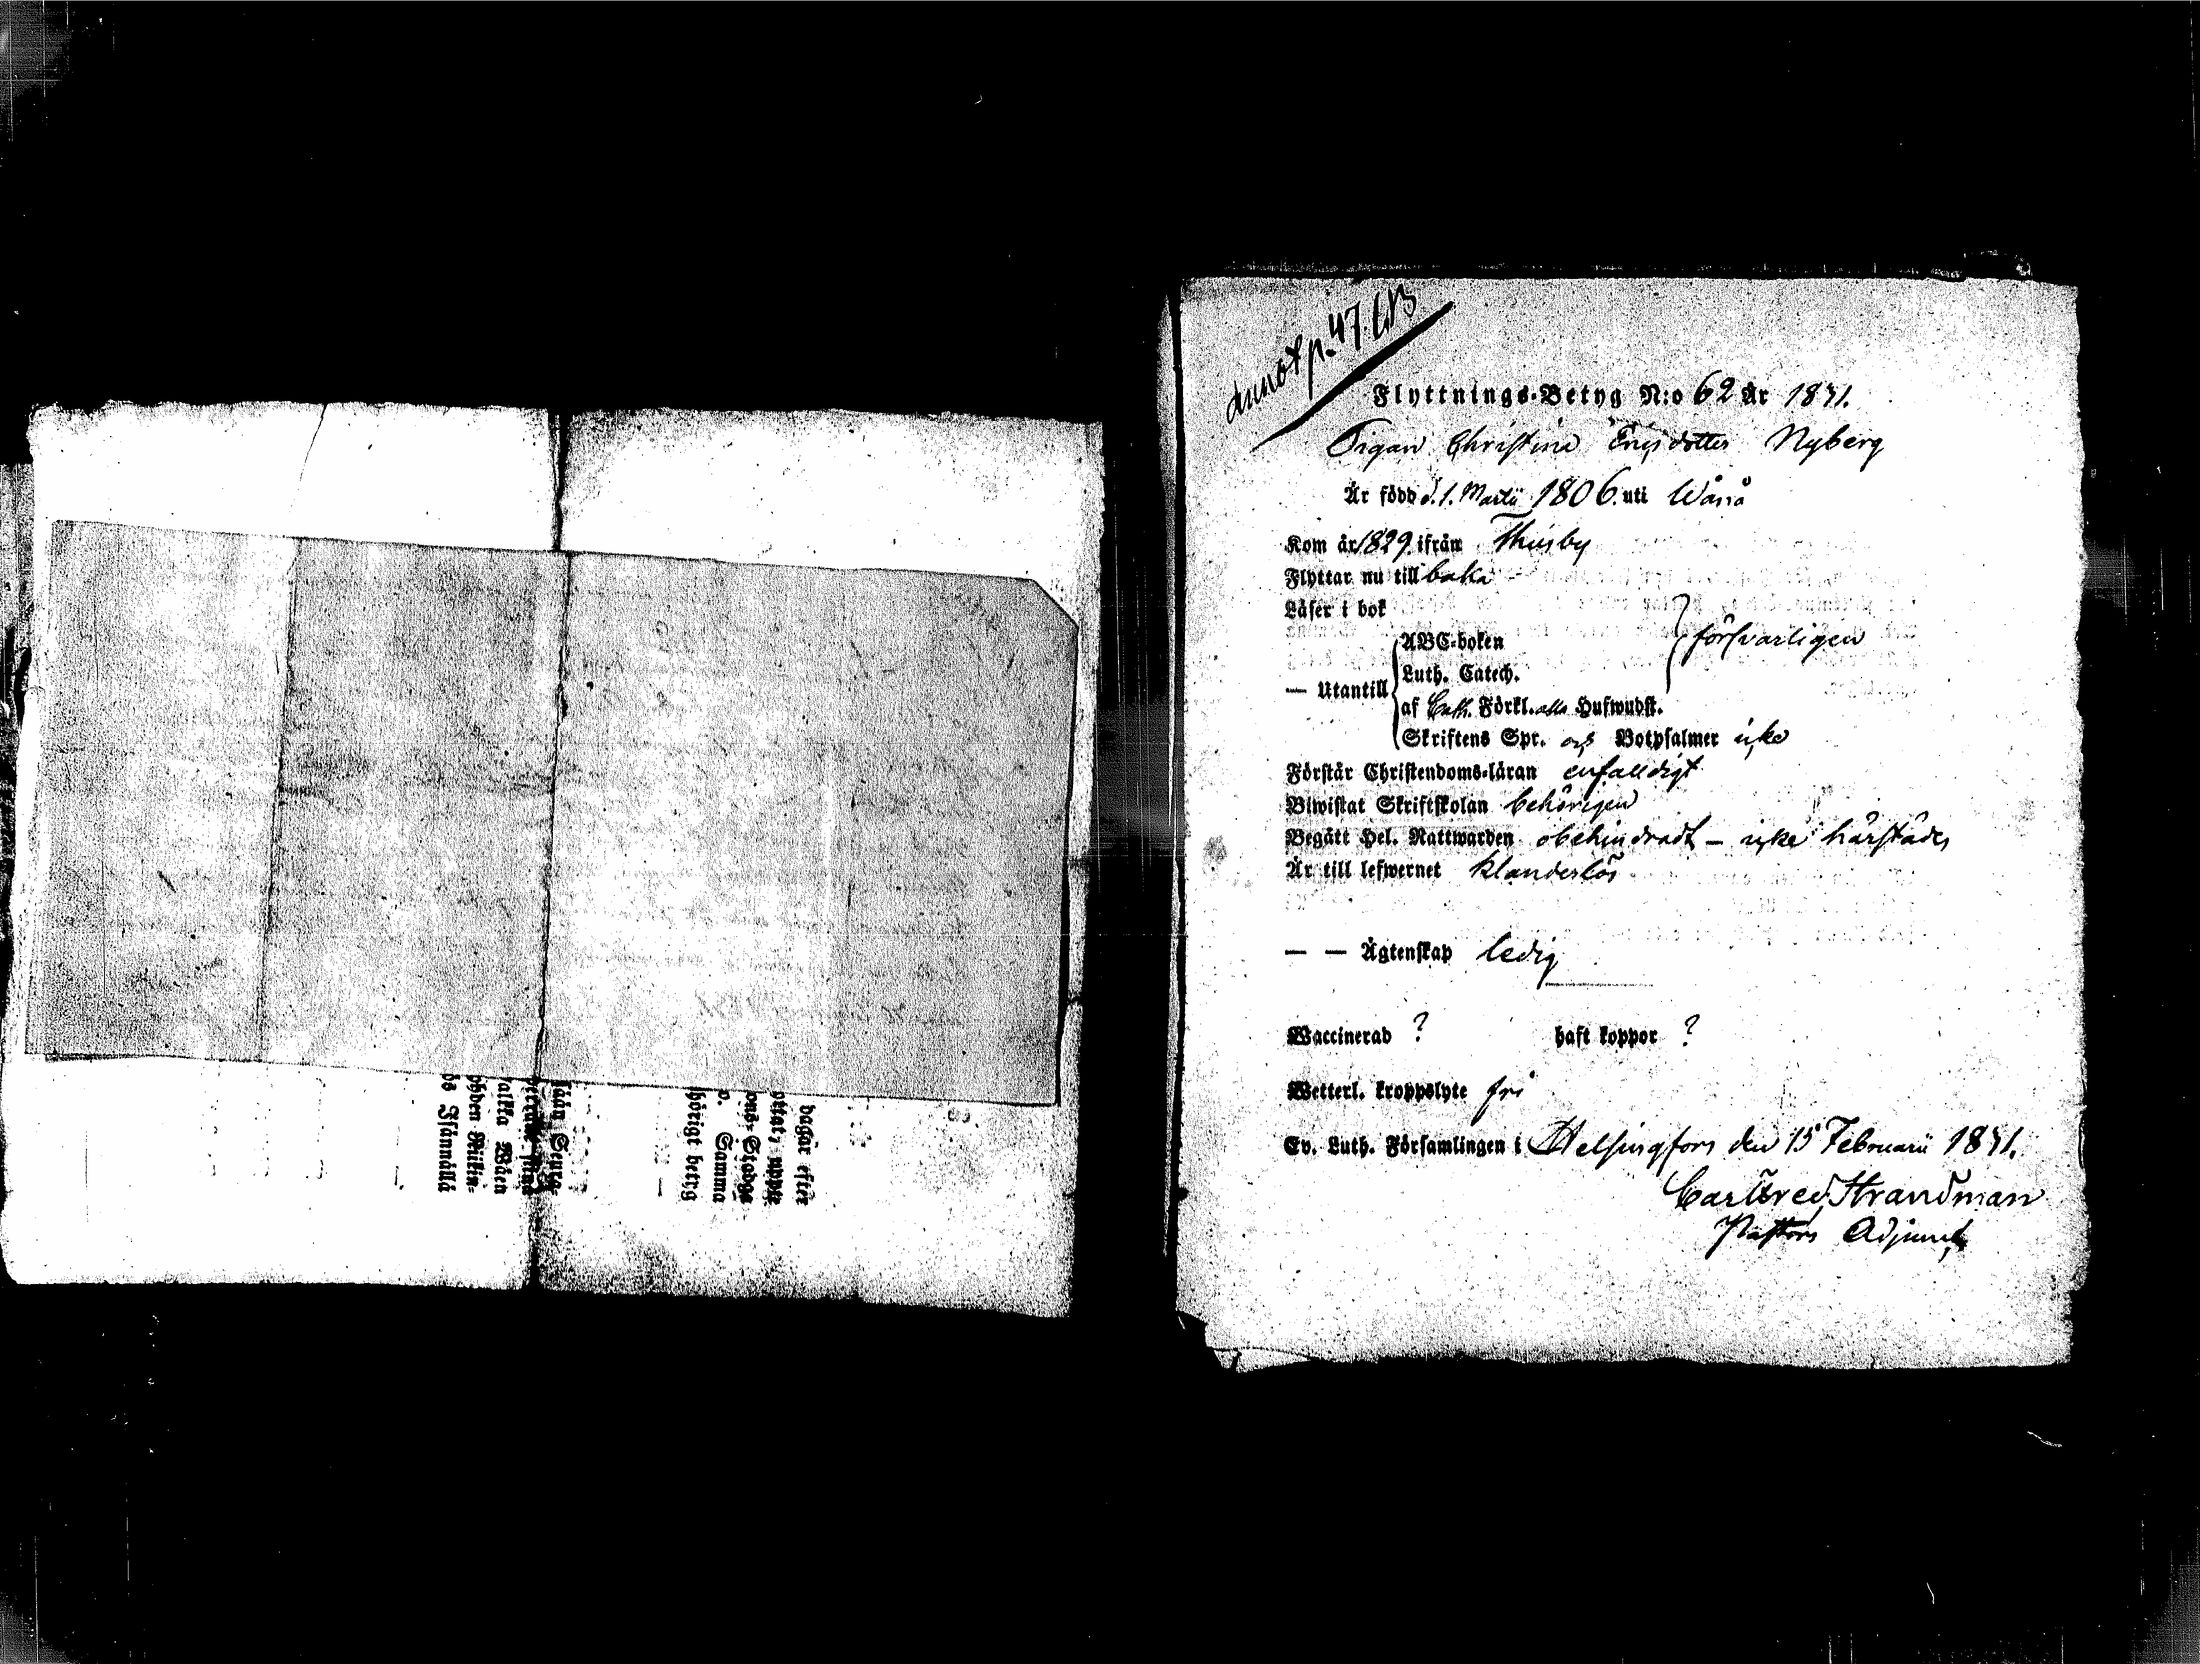 annot p. 47. CB
Flyttnings-Betyg N:o 62 År 1841.
Pigan Christina Ericsdotter Nyberg
Är född d. 1. Martii 1806. uti Wånå
Kom år 1829. ifrån Thusby
Flyttar nu till baka
Läser i bok
ABC-boken } försvarligen
Luth. Catech.
— Utantill
af Cath. Förkl. alla Hufwudst.
Skriftens Spr. och Botpsalmer icke
Förstår Christendoms-läran enfalldigt
Biwistat Skriftskolan behörigen
Begått Hel. Nattwarden obehindradt – icke härstädes
Är till lefwernet klanderlös
— — Ägtenskap ledig
Waccinerad ? haft koppor ?
Wetterl. kroppslyte fri
Ev. Luth. Församlingen i Helsingfors den 15 Februarii 1841.
Carl Fred. Strandman
Pastors Adjunct
dagår efter
ons-Stadga
d. Samma
hörigt betyg
alkka Wäen